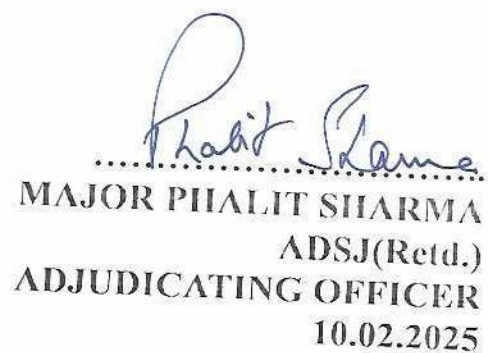 Phalit Sharma
MAJOR PHALIT SHARMA
ADSJ(Retd.)
ADJUDICATING OFFICER
10.02.2025